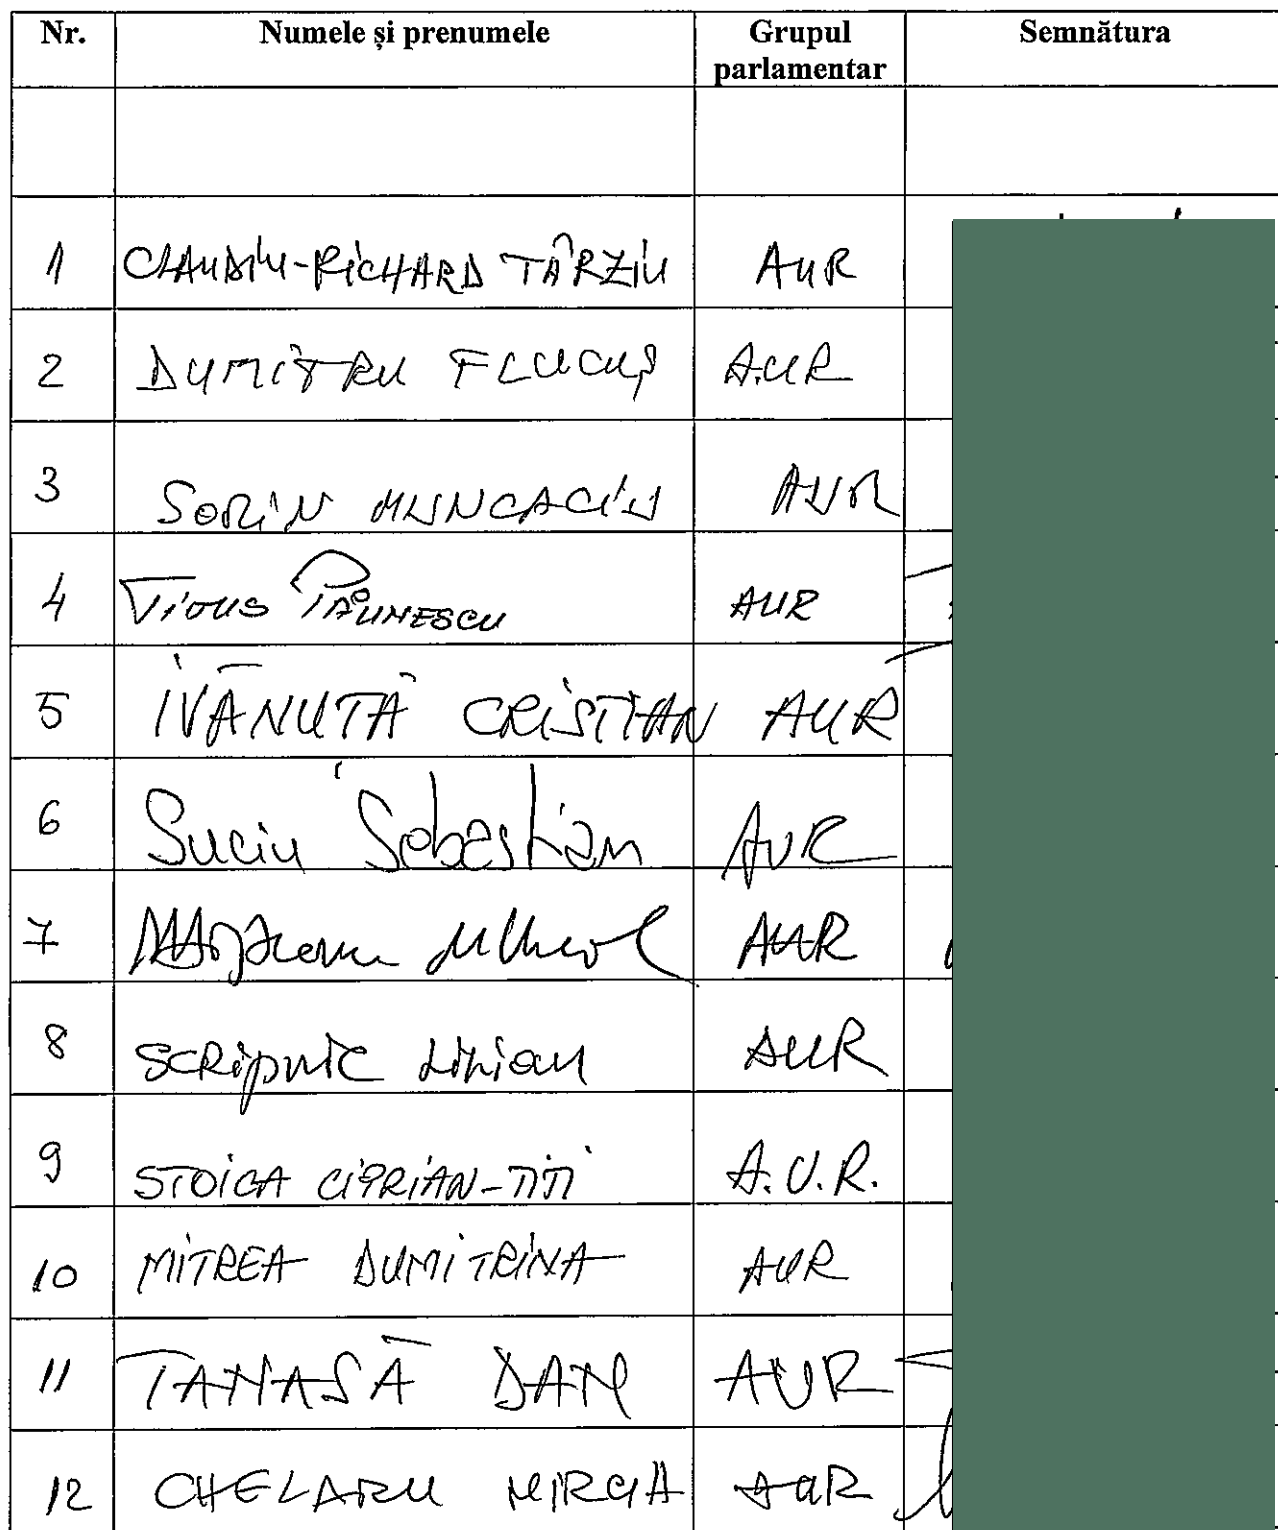 Nr. Numele și prenumele Grupul parlamentar Semnătura
1 CLAUDIU-RICHARD TÂRZIU AUR
2 DUMITRU FLUCUȘ A.UR
3 SORIN MUNCACIU AUR
4 PĂUNESCU AUR
5 IVĂNUȚĂ CRISTIAN AUR
6 Suciu Sebastian AUR
7 AUR
8 SCRipnic Lilian AUR
9 STOICA CIPRIAN-TITI A.U.R.
10 MITREA DUMITRINA AUR
11 TANASĂ DAN AUR
12 CHELARU MIRCEA AUR